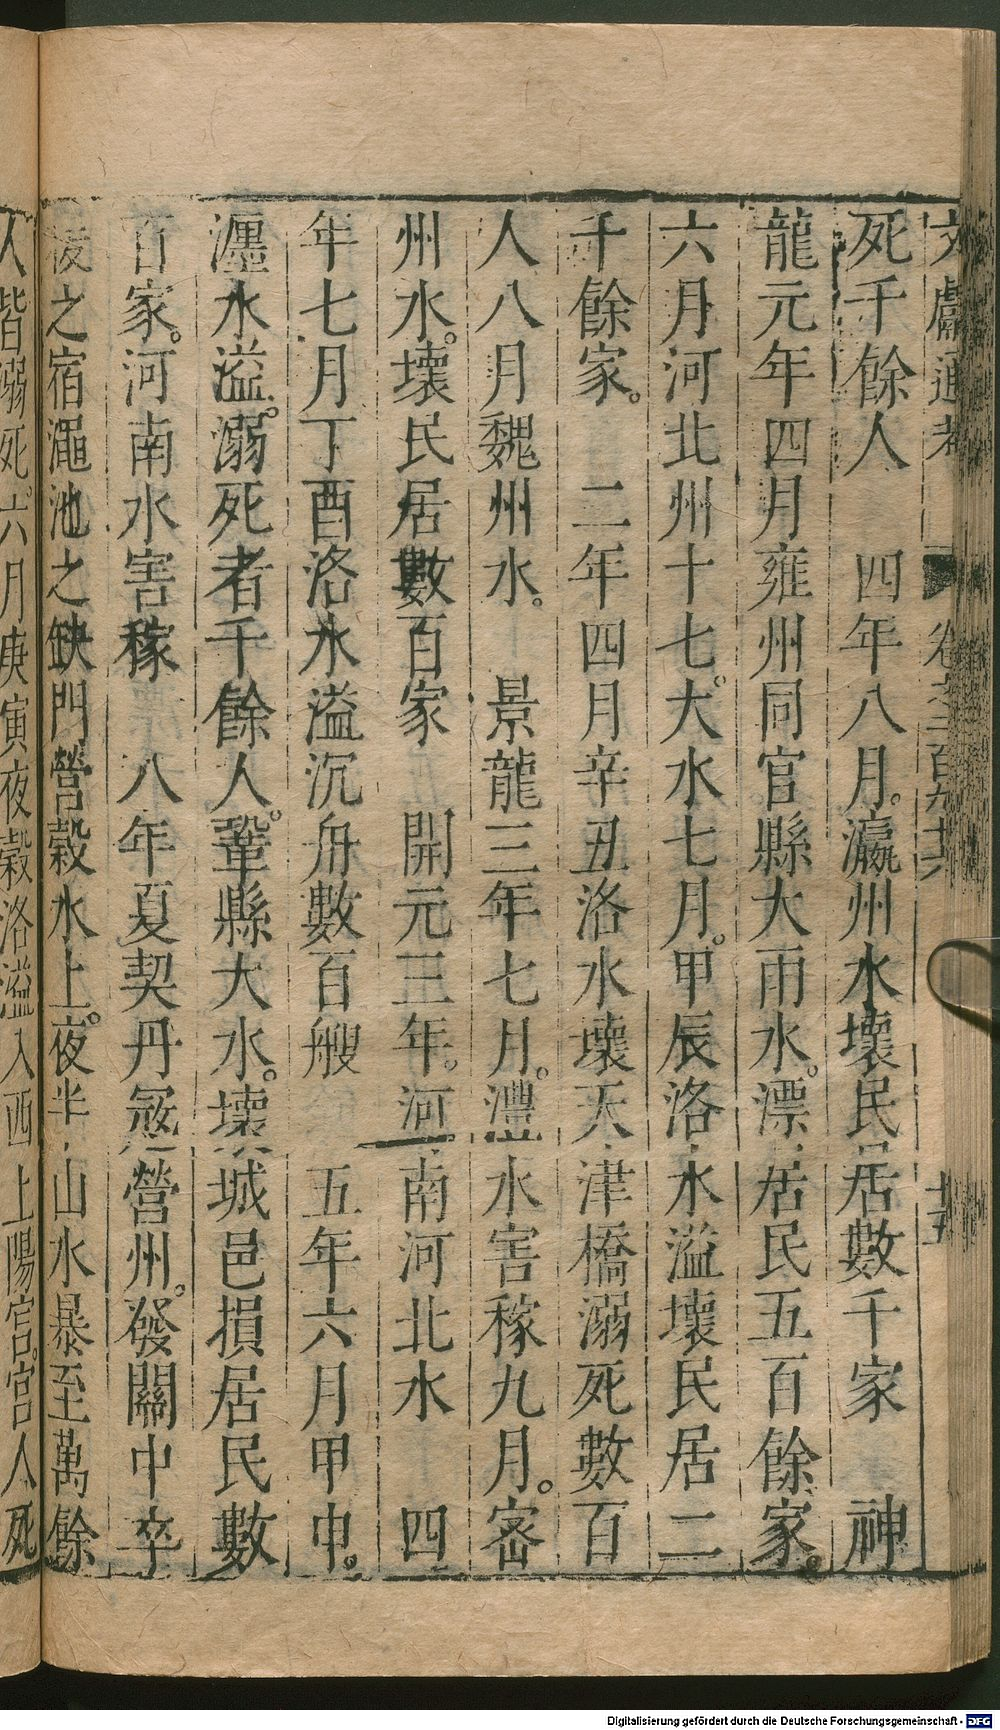 文獻通考 卷之二百九十六 十五
死千餘人 四年八月。瀛州水壞民居數千家 神
龍元年四月雍州同官縣大雨水。漂居民五百餘家。
六月河北州十七。大水七月。甲辰洛水溢壞民居二
千餘家。 二年四月辛丑洛水壞天津橋溺死數百
人八月魏州水。 景龍三年七月。澧水害稼九月。密
州水。壞民居數百家 開元三年。河南河北水 四
年七月丁酉洛水溢沉舟數百艘 五年六月甲申。
瀍水溢。溺死者千餘人。鞏縣大水。壞城邑損居民數
百家。河南水害稼 八年夏契丹冦營州。發關中卒
援之宿澠池之缺門營穀水上。夜半山水暴至萬餘
人皆溺死。六月庚寅夜穀洛溢入西上陽宮。宮人死
Digitalisierung gefördert durch die Deutsche Forschungsgemeinschaft - DFG